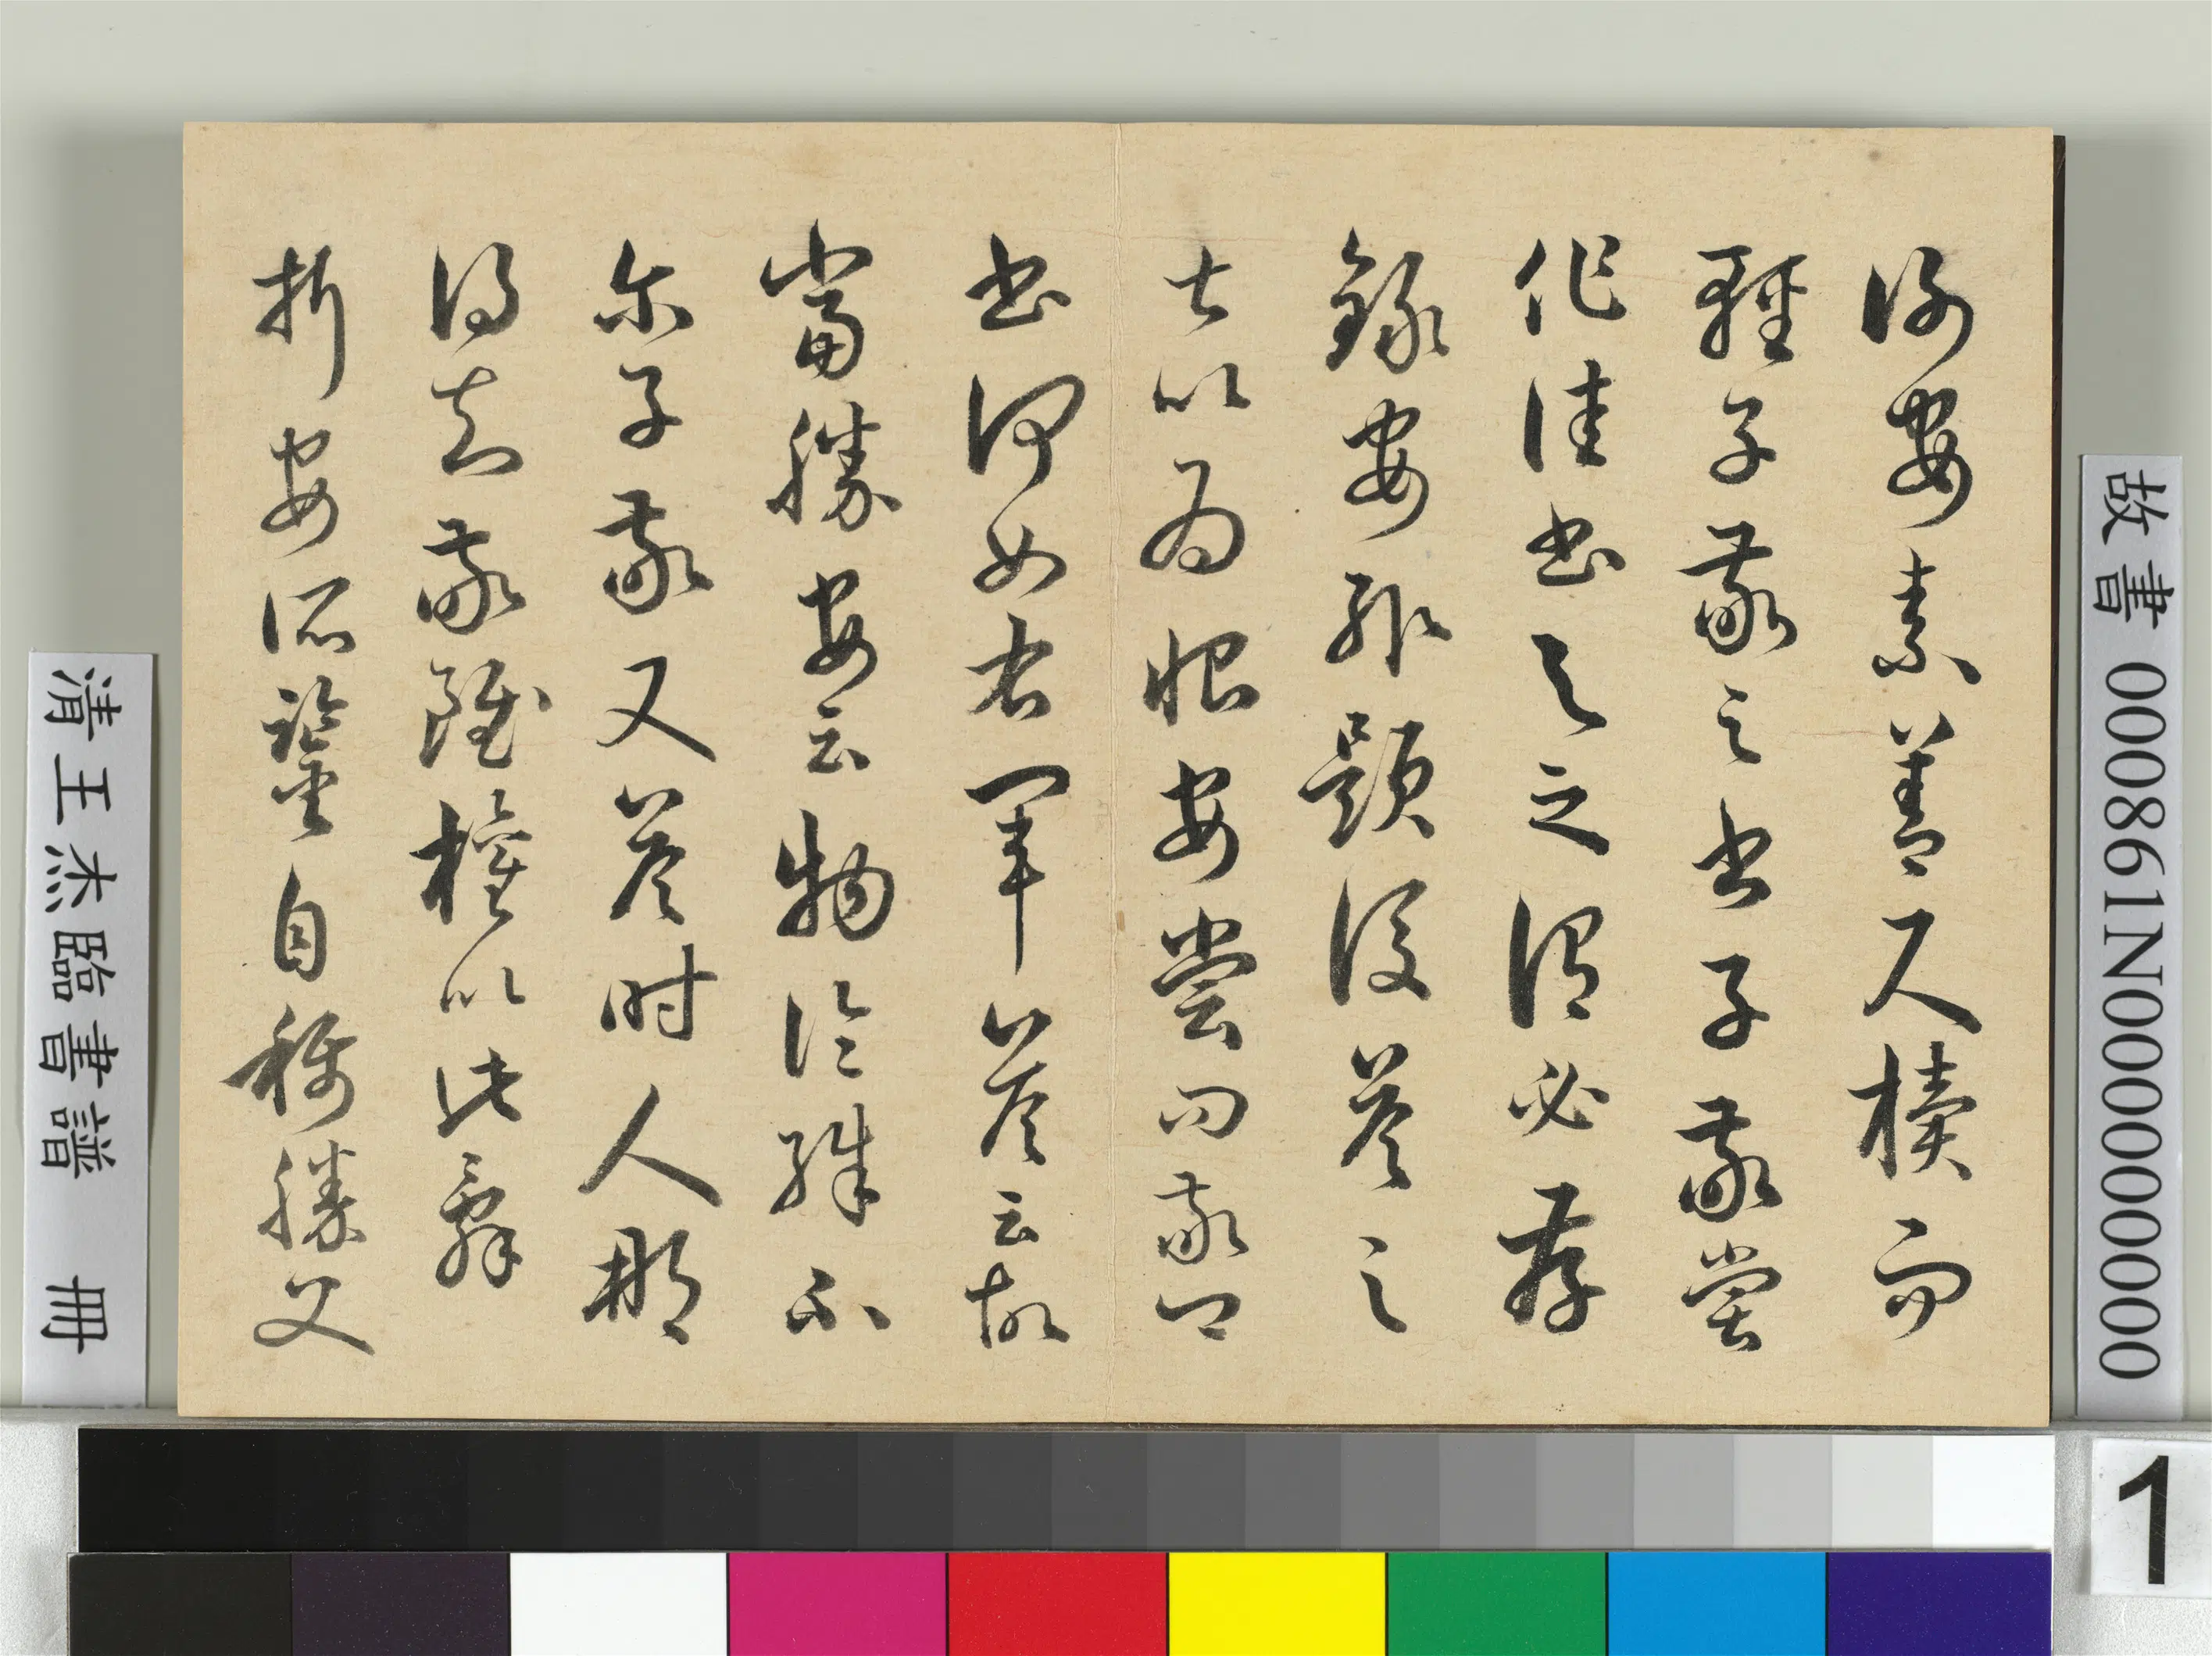 謝安素善尺牘而
輕子敬之書子敬嘗
作佳書與之謂必存
錄安輒題後答之
甚以為恨安嘗問敬卿
書何如右軍答云故
當勝安云物論殊不
尔子敬又答時人那
得知敬雖權以此辭
折安所鑒自稱勝父
故書 000861N000000000
清王杰臨書譜 冊
1